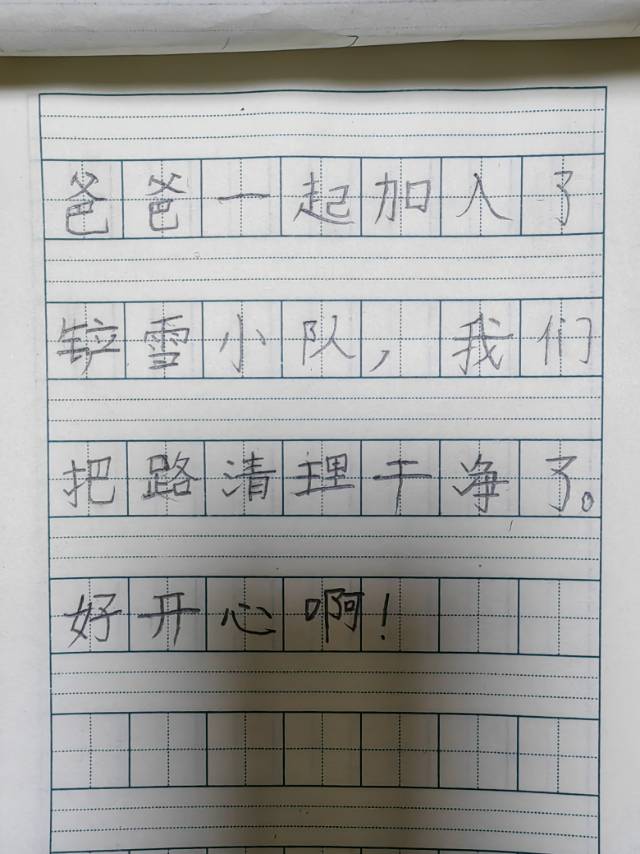 爸爸一起加入了
铲雪小队，我们
把路清理干净了。
好开心啊！